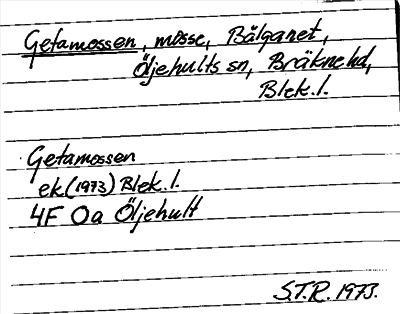 Getamossen, mosse, Bålganet,
Öljehults sn, Bräkne hd,
Blek. l.
Getamossen
ek. (1973) Blek. l.
4F Oa Öljehult
S.T.R. 1973.